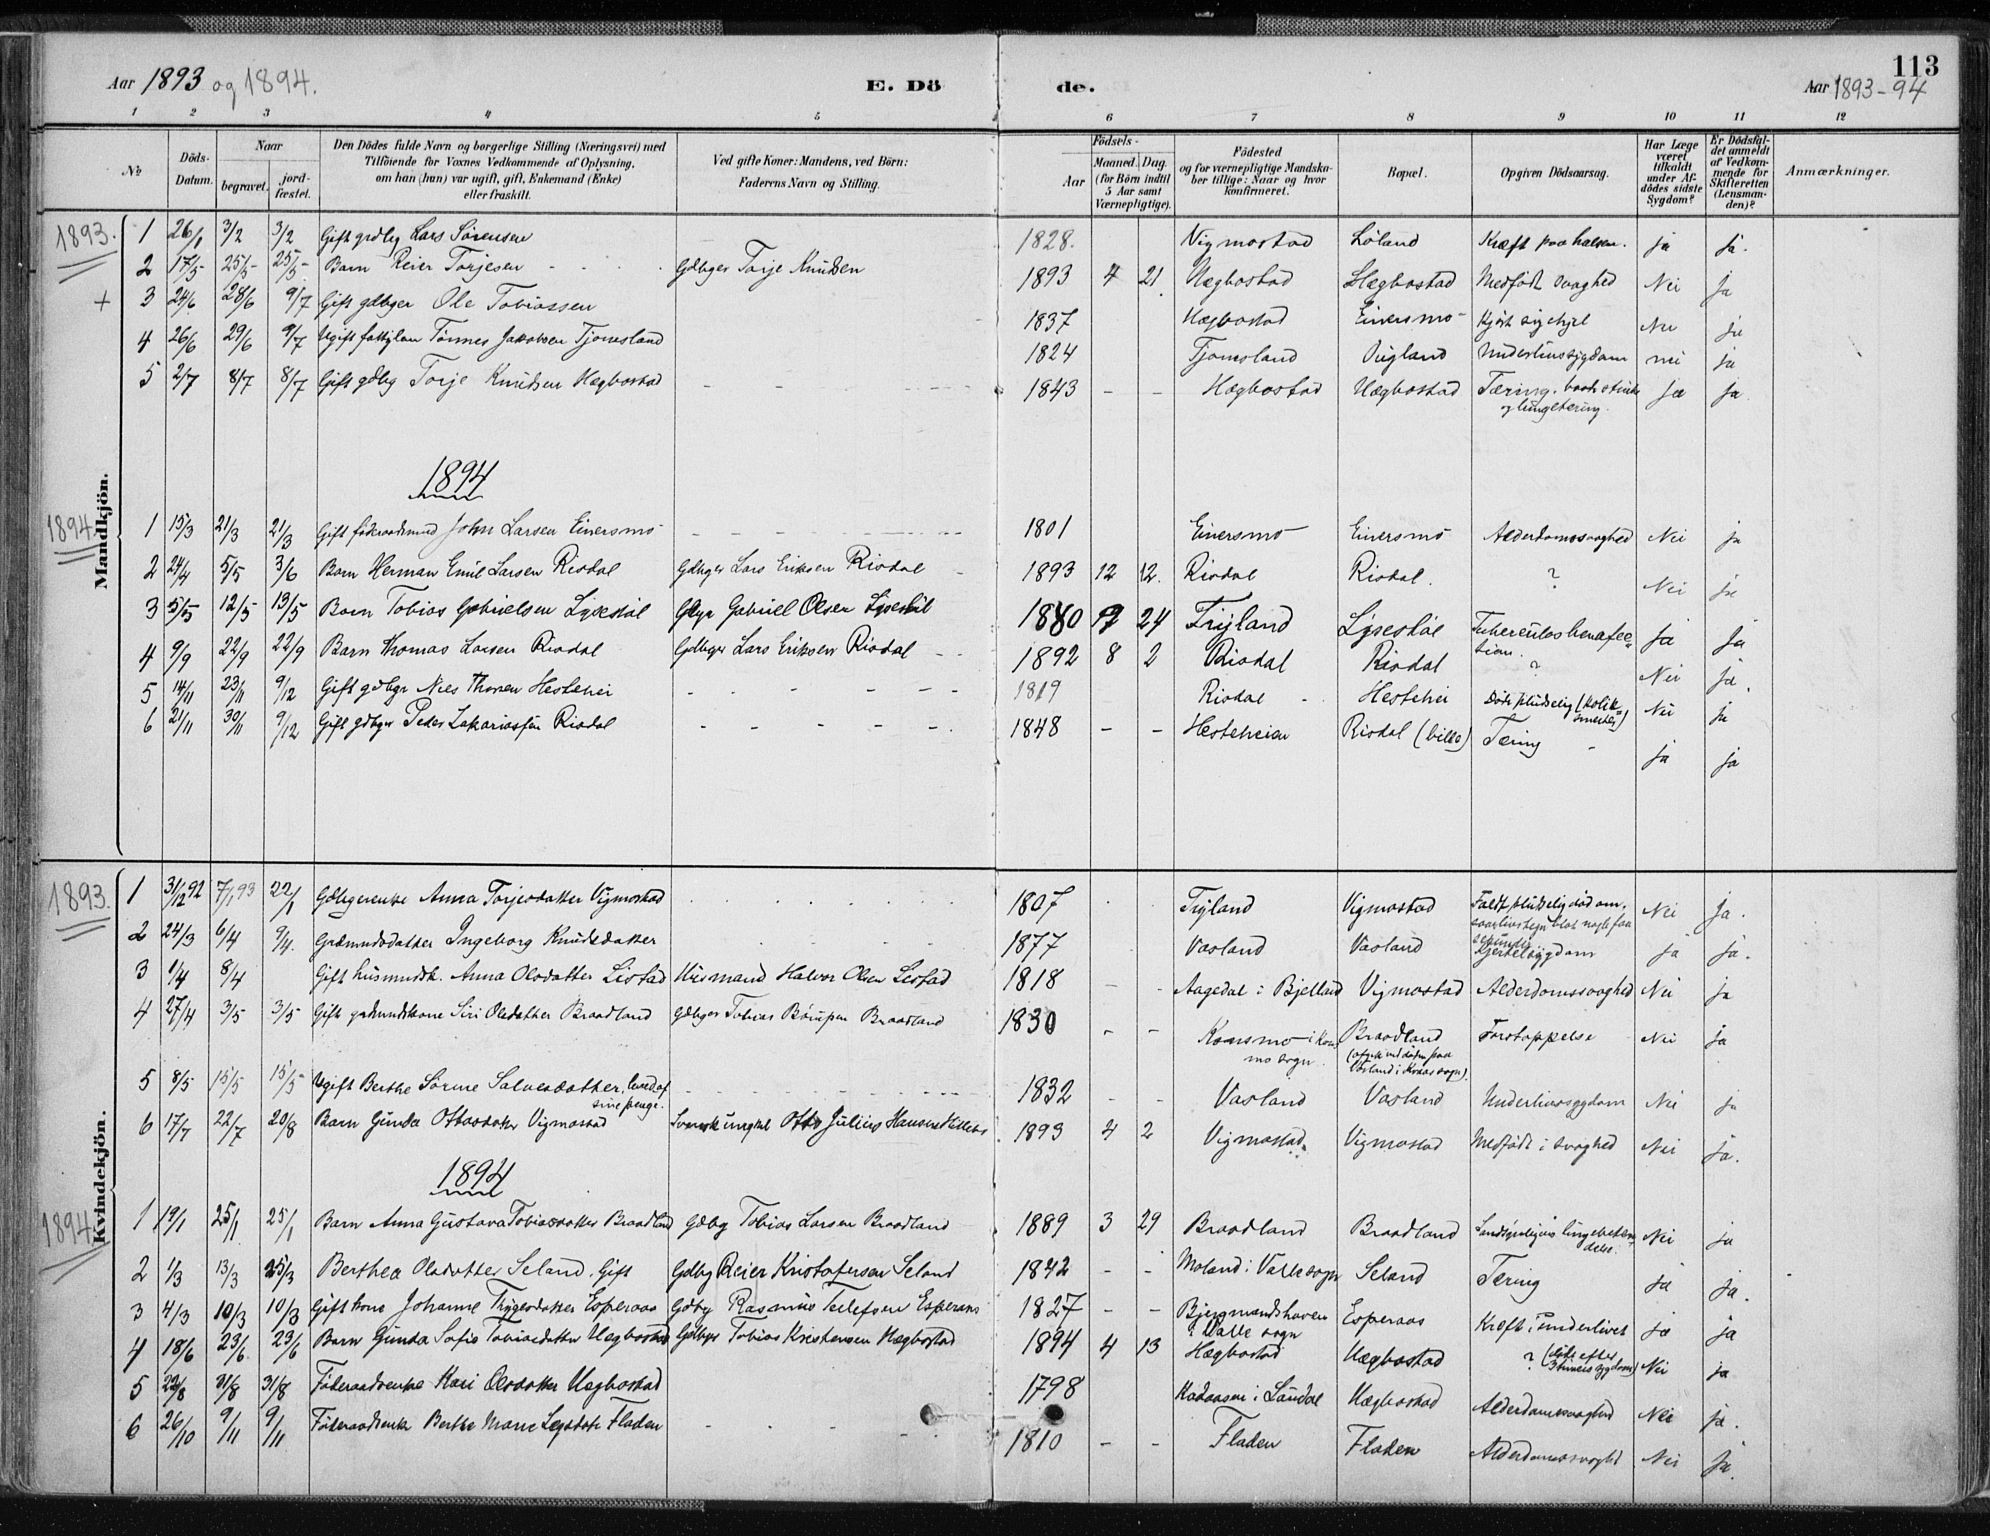 113
Aar 1893 og 1894. E. Dö de. Aar 1893-94
1 2 3 4 5 6 7 8 9 10 11 12
№
Döds-Datum.
Naar
begravet.
jord-fæstet.
Den Dödes fulde Navn og borgerlige Stilling (Næringsvei) med
Tilföiende for Voxnes Vedkommende af Oplysning,
om han (hun) var ugift, gift, Enkemand (Enke)
eller fraskilt.
Ved gifte Koner: Mandens, ved Börn:
Faderens Navn og Stilling.
Födsels-
Aar
Maaned. Dag.
(for Börn indtil
5 Aar samt
Værnepligtige).
Födested
og for værnepligtige Mandska-
ber tillige: Naar og hvor
konfirmeret.
Bopæl.
Opgiven Dödsaarsag.
Har Læge
været
tilkaldt
under Af-
dödes sidste
Sygdom?
Er Dödsfal-
det anmeldt
af Vedkom-
mende for
Skifteretten
(Lensman-
den)?
Anmærkninger.
Mandkjön.
1893.
1 26/1 3/2 3/2 Gift grdbg Lars Sörensen 1828. Vigmostad Löland Kræft paa halsen. ja ja.
2 17/5 25/5 25/5 Barn Reier Torjesen Gdbger Torje Knudsen 1893 4 21 Hægbostad Hægbostad Medfödt svaghed Nei ja
+ 3 24/6 28/6 9/7 Gift gdbger Ole Tobiassen 1837 Hægbostad Einersmo Nei ja
4 26/6 29/6 9/7 Ugift Tönnes Jakobsen Tjomsland 1824 Tjomsland Underlivssygdom nei ja
5 2/7 8/7 8/7 Gift gdbg Torje Knudsen Hægbostad - - 1843 - - Hægbostad Hægbostad Tæring. ja ja
og lungetæring.
1894
1894
1 15/3 21/3 21/3 Gift föderaadsmand John Larsen Einersmo 1801 Einersmo Einersmo Alderdomssvaghed Nei ja
2 24/4 5/5 3/6 Barn Herman Emil Larsen Risdal Gdbger Lars Eriksen Risdal 1893 12 12. Risdal Risdal. ? Nei ja
3 5/5 12/5 13/5 Barn Tobias Gabrielsen Lysestöl Gabriel Olsen Lysestöl 1880 9 24 Tryland Lysestöl ja ja
4 9/9 22/9 22/9 Barn Thomas Larsen Risdal Gdbger Lars Eriksen Risdal 1892 8 2 Risdal Risdal ? Nei ja.
5 14/11 23/11 9/12 Gift gdbgr Hestehei - - 1819 Risdal Hestehei Döde pludselig (kolik-
smerter) Nei ja
6 21/11 30/11 9/12 Gift gdbger Peder Zakariassen Risdal - - 1848 - - Hesteheien Risdal Tæring ja ja
Kvindekjön.
1893.
1 31/12 92 7/1 93 22/1 Gdbgerenke Anna Torjesdatter Vigmostad 1807 Tryland Vigmostad Faldt pludselig död om. Nei ja.
2 24/3 6/4 9/4. Ingeborg Knudsdatter 1877 Vasland Vasland Kjertelsygdom ja ja.
3 1/4 8/4 Gift Anna Olsdatter Listad Husmand Halvor Olsen Listad 1818 - - Aagedal i Bjelland Vigmostad Alderdomssvaghed Nei ja
4 27/4 3/5 3/5 Gift Siri Olsdatter Braadland Gdbger Tobias Braadland 1830 - - Konsmo i Kons-
mo sogn Braadland Forstoppelse Nei ja
5 8/5 15/5 15/5 Ugift Berthe Sörine Salvesdatter. Leved af
sine penge. 1832 - - Vasland Vasland Underlivssygdom Nei ja
6 17/7 22/7 20/8 Barn Gunda Ottosdatter Vigmostad Otto Julius Hansen 1893 4 2 Vigmostad Vigmostad Medfödt svaghed Nei ja.
1894
1894
1 19/1 25/1 25/1 Barn Anna Gustava Tobiasdatter Braadland Gdbg Tobias Larsen Braadland 1889 3 29 Braadland Braadland Nei ja
2 1/3 13/3 25/3 Berthea Olsdatter Seland. Gift Gdbg Reier Kristofersen Seland 1842 - - Moland i Valle sogn Seland Tæring ja ja.
3 4/3 10/3 10/3 Gift kone Johanne Thygesdatter Esperaas Gdbg Rasmus Tellefsen Esperaas 1827 - - Bjergmandshaven
i Valle sogn Esperaas Kræft i underlivet ja ja
4 18/6 23/6. 23/6 Barn Gunda Sofie Tobiasdatter Hægbostad Gdbgr Tobias Kristensen Hægbostad 1894 4 13 Hægbostad Hægbostad ? Nei ja
5 22/8 31/8 31/8 Föderaadsenke Kari Olsdatter Hægbostad 1798 i Laudal Hægbostad Alderdomssvaghed Nei ja.
6 26/10 9/11 9/11 Föderaadsenke Berthe Marie Fladen 1810 - - Fladen Fladen Alderdomssvaghd Nei ja.